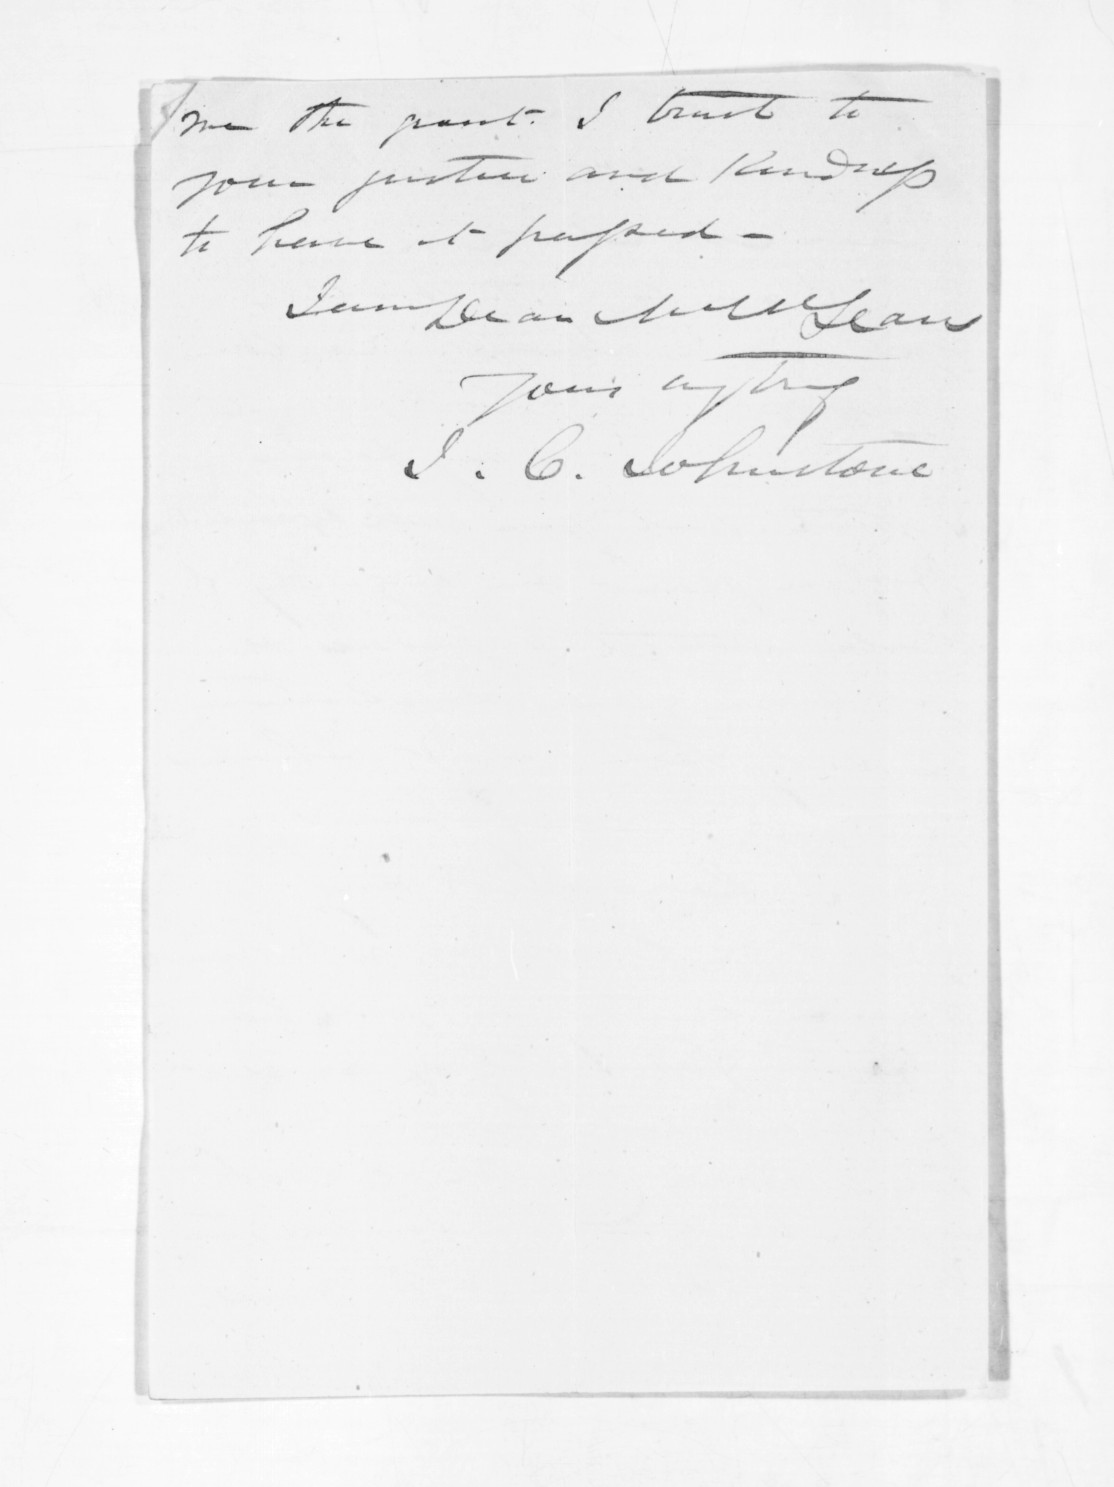 me the grant. I trust to
your justice and Kindness
to have it passed -
I am Dear Mr McLean
Yours very truly
J. C. Johnstone